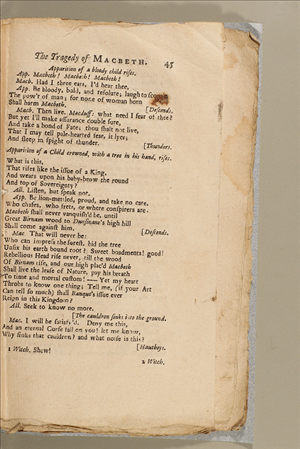 The Tragedy of MACBETH. 43
Apparition of a bloody child rises.
App. Macbeth! Macbeth! Macbeth!
Macb. Had I three ears, I'd hear thee.
App. Be bloody, bold, and resolute; laugh to scorn
The pow'r of man; for none of woman born
Shall harm Macbeth. [Descends.
Macb. Then live, Macduff: what need I fear of thee?
But yet I'll make assurance double sure,
And take a bond of Fate; thou shalt not live,
That I may tell pale-hearted fear, it lyes;
And sleep in spight of thunder. [Thunders.
Apparition of a Child crowned, with a tree in his hand, rises.
What is this,
That rises like the issue of a King,
And wears upon his baby-brow the round
And top of Sovereignty?
All. Listen, but speak not.
App. Be lion-mettled, proud, and take no care,
Who chafes, who frets, or where conspirers are:
Macbeth shall never vanquish'd be, until
Great Birnam wood to Dunsinane's high hill
Shall come against him. [Descends.
Mac. That will never be:
Who can impress the forest, bid the tree
Unfix his earth bound root? Sweet boadments! good!
Rebellious Head rise never, till the wood
Of Birnam rise, and our high plac'd Macbeth
Shall live the lease of Nature, pay his breath
To time and mortal custom! — Yet my heart
Throbs to know one thing; Tell me, (if your Art
Can tell so much) shall Banquo's issue ever
Reign in this Kingdom?
All. Seek to know no more.
[The cauldron sinks into the ground.
Mac. I will be satisfy'd. Deny me this,
And an eternal Curse fall on you! let me know,
Why sinks that cauldron? and what noise is this?
[Hautboys.
1 Witch. Shew!
2 Witch.